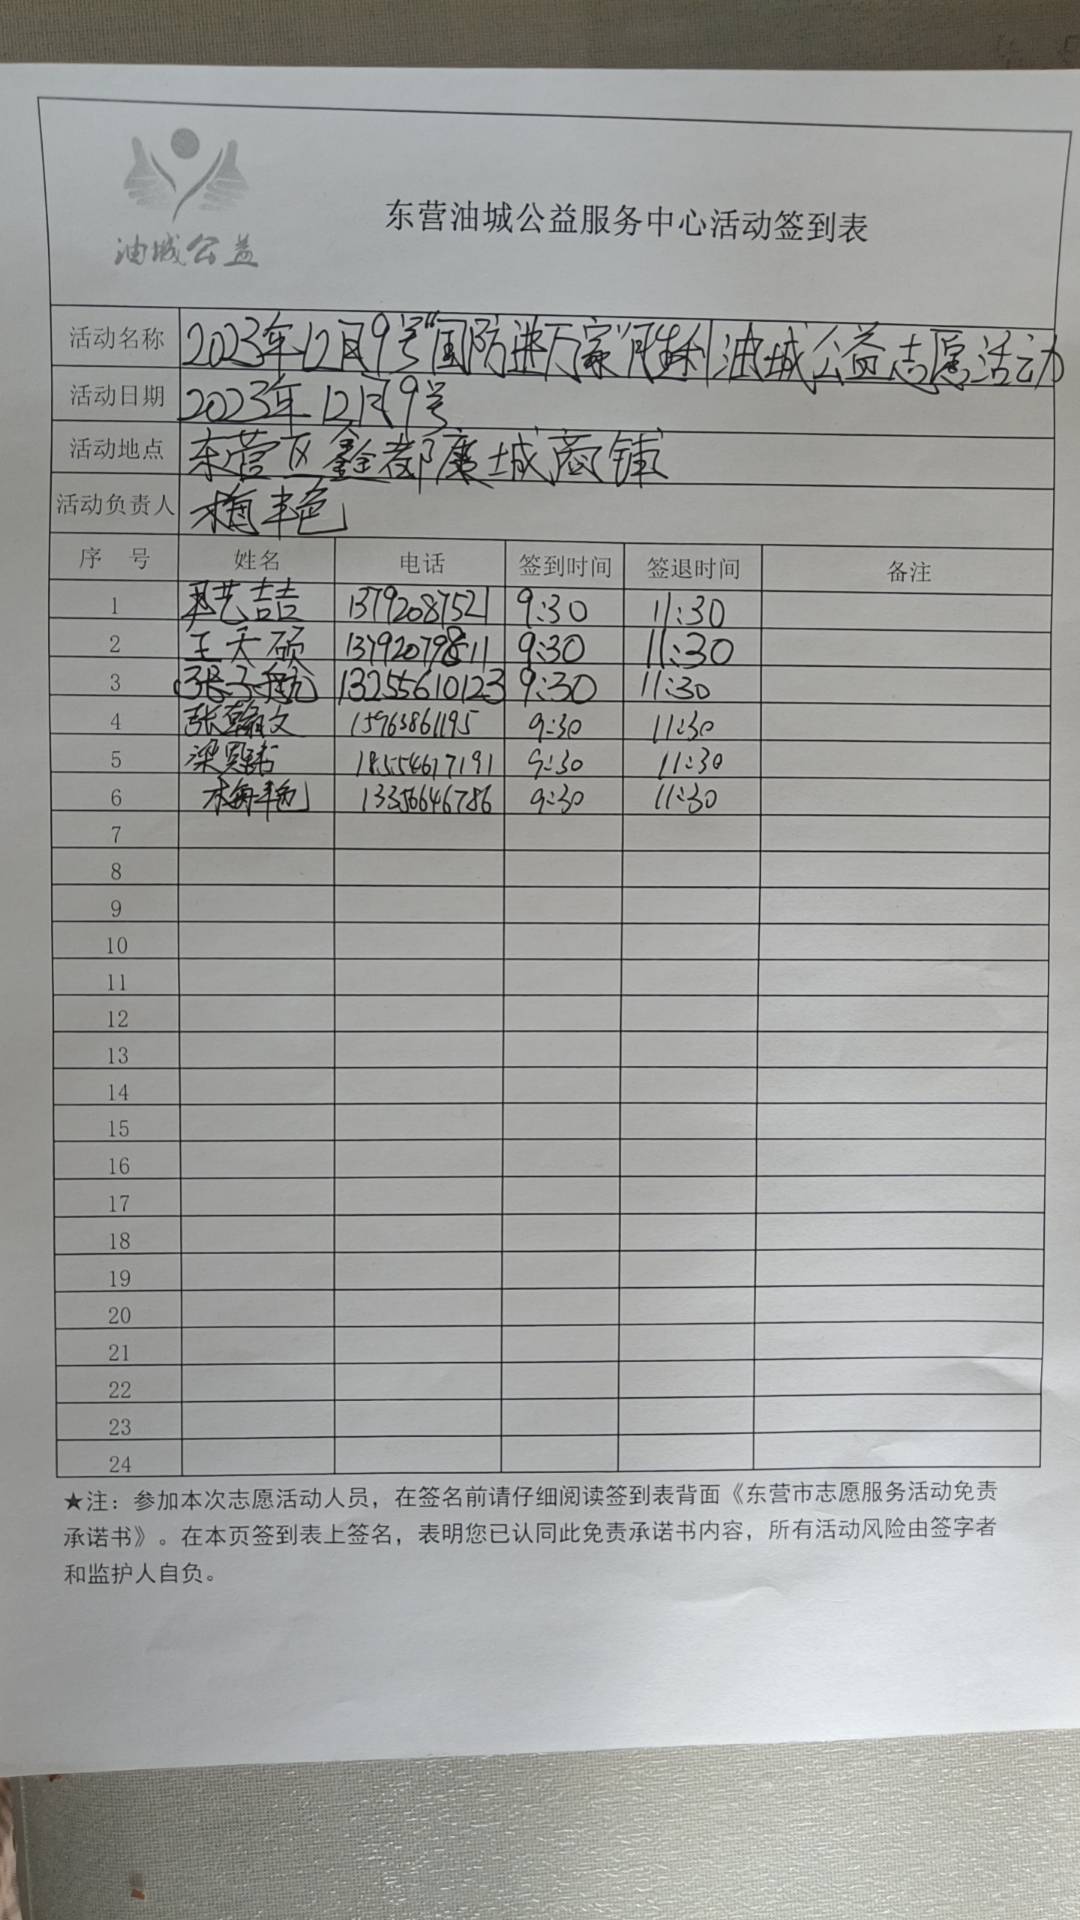 油城公益
东营油城公益服务中心活动签到表
活动名称 2023年12月9号"国防进万家"胜利油城公益志愿活动
活动日期 2023年12月9号
活动地点 东营区鑫都廉城商铺
活动负责人 梅丰色
序 号 姓名 电话 签到时间 签退时间 备注
1 艺喆 13792087521 9:30 11:30
2 王天硕 13792079811 9:30 11:30
3 张子航 13255610123 9:30 11:30
4 张翰文 15963861195 9:30 11:30
5 梁 18554617191 9:30 11:30
6 梅艳 13356646786 9:30 11:30
7
8
9
10
11
12
13
14
15
16
17
18
19
20
21
22
23
24
★注：参加本次志愿活动人员，在签名前请仔细阅读签到表背面《东营市志愿服务活动免责
承诺书》。在本页签到表上签名，表明您已认同此免责承诺书内容，所有活动风险由签字者
和监护人自负。